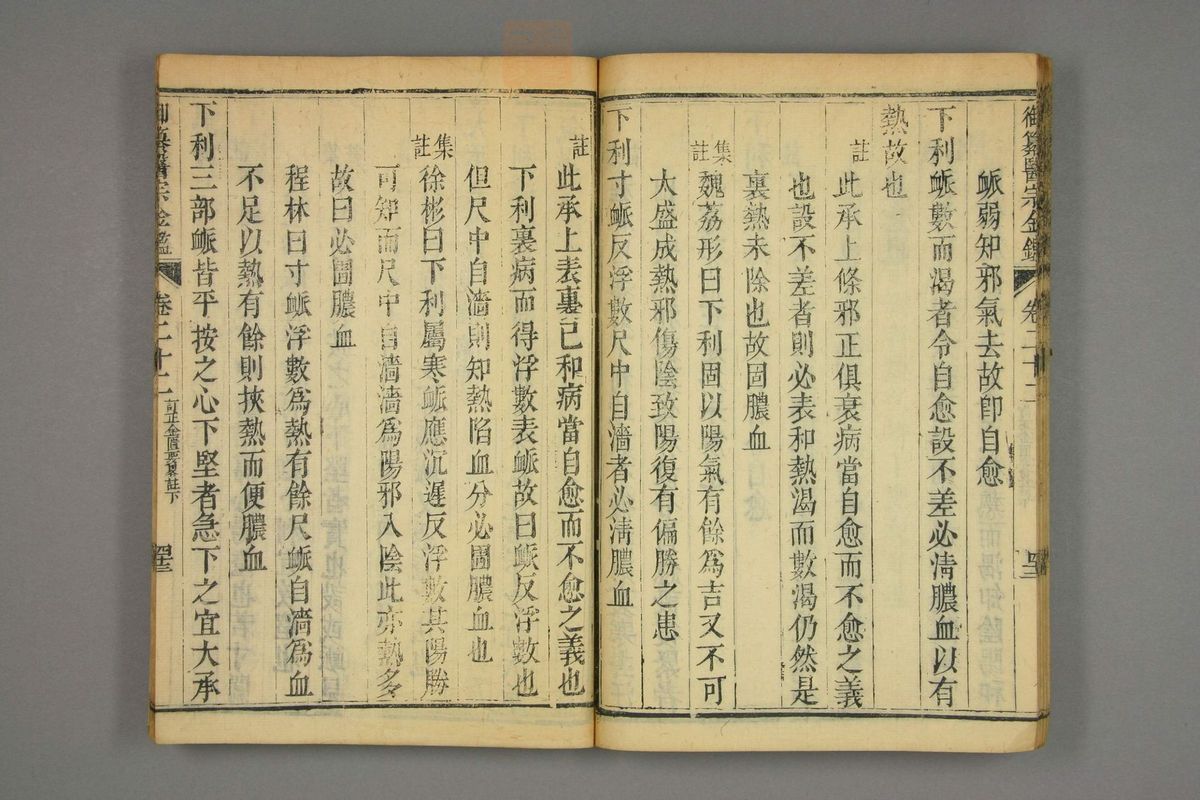 御纂醫宗金鑑 卷二十二
脈弱知邪氣去故卽自愈
下利脈數而渴者令自愈設不差必淸膿血以有
熱故也
註 此承上條邪正俱衰病當自愈而不愈之義
也設不差者則必表和熱渴而數渴仍然是
裏熱未除也故圊膿血
集註 魏荔彤曰下利固以陽氣有餘爲吉又不可
太盛成熱邪傷陰致陽復有偏勝之患
下利寸脈反浮數尺中自濇者必淸膿血
註 此承上表裏已和病當自愈而不愈之義也
下利裏病而得浮數表脈故曰脈反浮數也
但尺中自濇則知熱陷血分必圊膿血也
集註 徐彬曰下利屬寒脈應沉遲反浮數其陽勝
可知而尺中自濇濇爲陽邪入陰此亦熱多
故曰必圊膿血
程林曰寸脈浮數爲熱有餘尺脈自濇爲血
不足以熱有餘則挾熱而便膿血
下利三部脈皆平按之心下堅者急下之宜大承
御纂醫宗金鑑 卷二十二 訂正金匱要畧註下